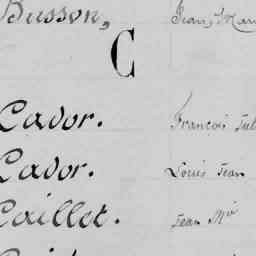 Busson, Jean, Mar
C
Cador. François Jul
Cador. Louis Jean
Caillet. Jean Mie